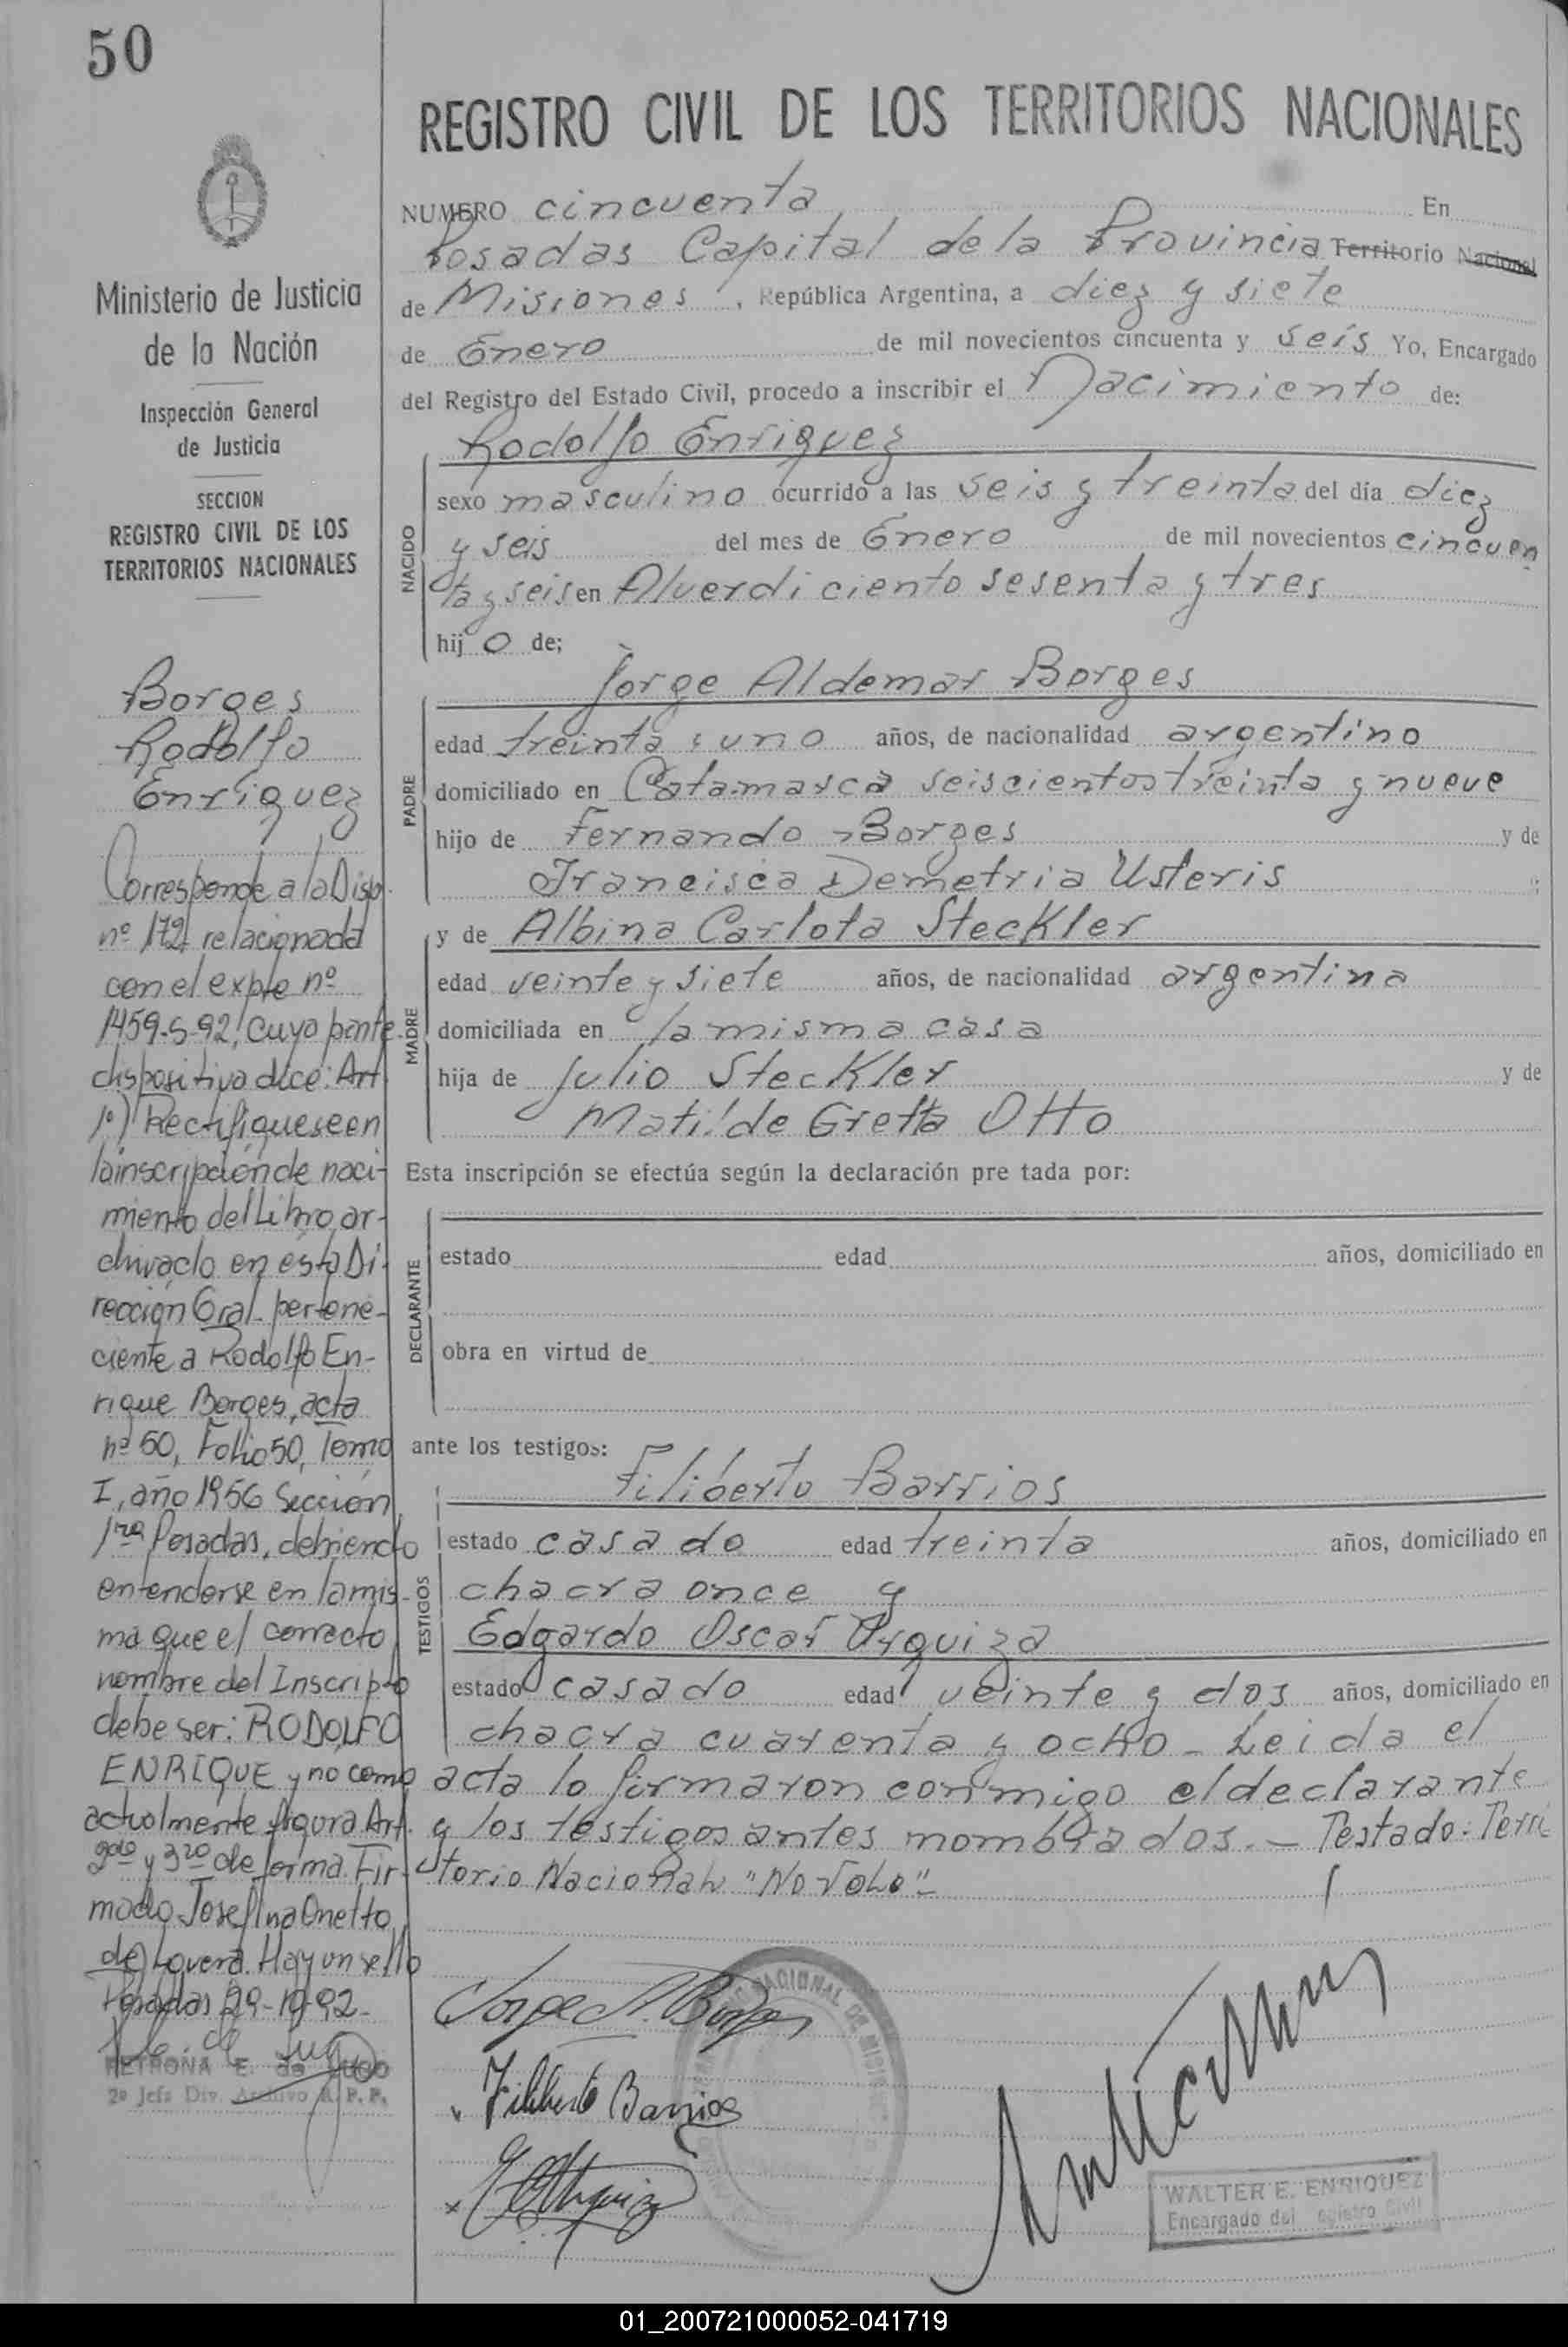 50
Ministerio de Justicia
de la Nación
Inspección General
de Justicia
SECCION
REGISTRO CIVIL DE LOS
TERRITORIOS NACIONALES
Borges
Rodolfo
Enriquez
Corresponde a la Disp.
nº 172 relacionada
con el expte nº
1459-S-92, cuya parte
dispositiva dice: Art
1º) Rectifiquese en
la inscripción de naci-
miento del Libro ar-
chivado en ésta Di-
rección Gral. pertene-
ciente a Rodolfo En-
rique Borges, acta
nº 50, Folio 50, Tomo
I, año 1956 Sección
1ra Posadas, debiendo
entenderse en la mis-
ma que el correcto
nombre del Inscripto
debe ser: RODOLFO
ENRIQUE y no como
actualmente figura Art.
2do y 3ro de forma. Fir-
mado Josefina Onetto
de Lovera. Hay un sello
Posadas 29-10-92-
PETRONA E. de LUGO
2º Jefe Div. Archivo R. P. P.
REGISTRO CIVIL DE LOS TERRITORIOS NACIONALES
NUMERO cincuenta En
Posadas Capital de la Provincia Territorio Nacional
de Misiones, República Argentina, a diez y siete
de Enero de mil novecientos cincuenta y seis Yo, Encargado
del Registro del Estado Civil, procedo a inscribir el Nacimiento de:
Rodolfo Enriquez
NACIDO
sexo masculino ocurrido a las seis y treinta del día diez
y seis del mes de Enero de mil novecientos cincuen
ta y seis en Alverdi ciento sesenta y tres
hijo de;
Jorge Aldemar Borges
PADRE
edad treinta y uno años, de nacionalidad argentino
domiciliado en Catamarca seiscientos treinta y nueve
hijo de Fernando Borges y de
Francisca Demetria Usteris
MADRE
y de Albina Carlota Steckler
edad veinte y siete años, de nacionalidad argentina
domiciliada en la misma casa
hija de Julio Steckler y de
Matilde Gretta Otto
Esta inscripción se efectúa según la declaración pre tada por:
DECLARANTE
estado edad años, domiciliado en
obra en virtud de
ante los testigos:
Filiberto Barrios
TESTIGOS
estado casado edad treinta años, domiciliado en
chacra once y
Edgardo Oscar Urquiza
estado casado edad veinte y dos años, domiciliado en
chacra cuarenta y ocho - Leida el
acta lo firmaron conmigo el declarante
y los testigos antes nombrados. - Testado: Terri
torio Nacional "No Vale"-
Jorge A. Borges
Filiberto Barrios
WALTER E. ENRIQUEZ
Encargado del egistro Civil
01_200721000052-041719